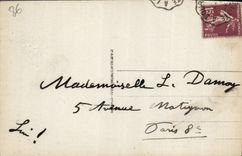 86
Mademoiselle L. Damoy
5 Avenue Matignon
Paris 8e